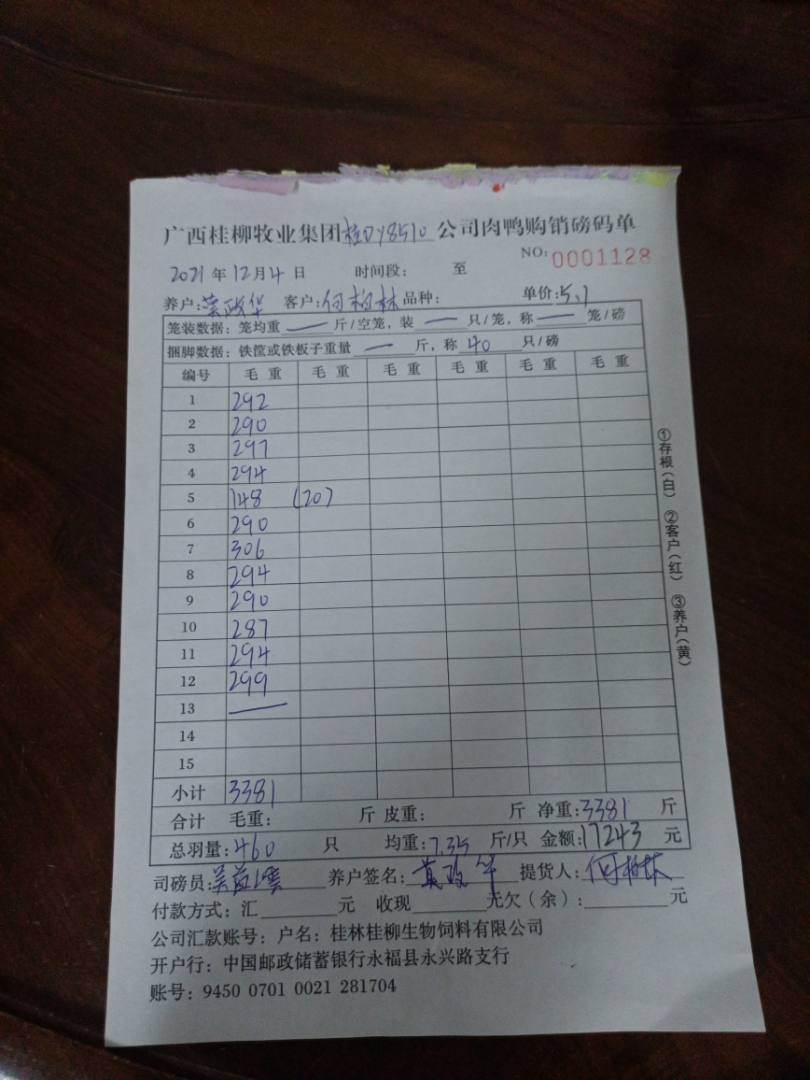 广西桂柳牧业集团桂DY8510公司肉鸭购销磅码单
NO: 0001128
2021年12月4日 时间段： 至
养户：黄政华 客户：何柏林 品种： 单价：5.1
笼装数据：笼均重 — 斤/空笼，装 — 只/笼，称 — 笼/磅
捆脚数据：铁筐或铁板子重量 — 斤，称 40 只/磅
编号 毛重 毛重 毛重 毛重 毛重 毛重
1 292
2 290
3 297
4 294
5 148 (20)
6 290
7 306
8 294
9 290
10 287
11 294
12 299
13 —
14
15
小计 3381
合计 毛重： 斤 皮重： 斤 净重：3381 斤
总羽量：460 只 均重：7.35 斤/只 金额：17243 元
司磅员： 养户签名：黄政华 提货人：何柏林
付款方式：汇 元 收现 元欠（余）： 元
公司汇款账号：户名：桂林桂柳生物饲料有限公司
开户行：中国邮政储蓄银行永福县永兴路支行
账号：9450 0701 0021 281704
①存根（白） ②客户（红） ③养户（黄）